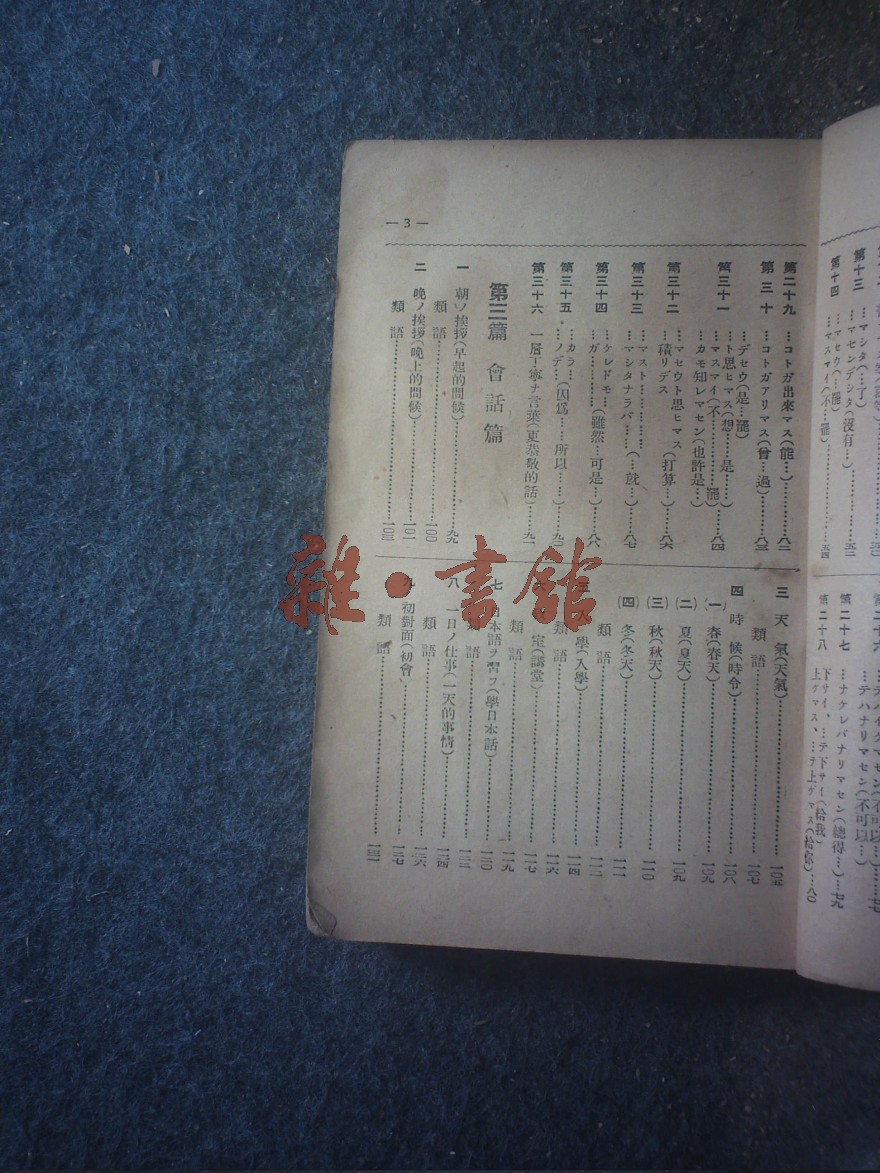 — 3 —
第二十九 …コトガ出來マス(能…)……八二
第三十 …コトガアリマス(曾…過)……八三
…デセウ(是…罷)
第三十一 …ト思ヒマス(想…是……)
…マスマイ(不………罷)……八四
…カモ知レマセン(也許是…)
第三十二 …マセウト思ヒマス(打算…)……八六
…積リデス
第三十三 …マスト……
…マシタナラバ……(…就…)……八七
第三十四 …ケレドモ…(雖然…可是…)……八八
…ガ…
第三十五 …カラ…(因爲……所以……)……九〇
…ノデ…
第三十六 一層丁寧ナ言葉(更恭敬的話)……九一
第三篇 會話篇
一 朝ノ挨拶(早起的問候)……九九
類語……一〇〇
二 晩ノ挨拶(晩上的問候)……一〇一
類語……一〇三
三 天氣(天氣)……一〇五
類語……一〇七
四 時候(時令)……一〇八
(一) 春(春天)……一〇九
(二) 夏(夏天)……一〇九
(三) 秋(秋天)……一一〇
(四) 冬(冬天)……一一一
類語……一一二
學(入學)……一一四
類語……一一六
室(講堂)……一一七
類語……一一九
七 日本語ヲ習フ(學日本話)……一二〇
類語……一二三
八 一日ノ仕事(一天的事情)……一二四
類語……一二六
九 初對面(初會)……一二七
類語……一三一
第十三 …マシタ(…了)
…マセンデシタ(沒有…)……五二
第十四 …マセウ(…罷)
…マスマイ(不…罷)……五四
第二十六 …テハイケマセン(不可以…)
…テハナリマセン(不可以…)……七七
第二十七 …ナケレバナリマセン(總得…)……七九
第二十八 下サイ、…テ下サイ(給我)
上ゲマス、…テ上ゲマス(給你)……八〇
雜·書館